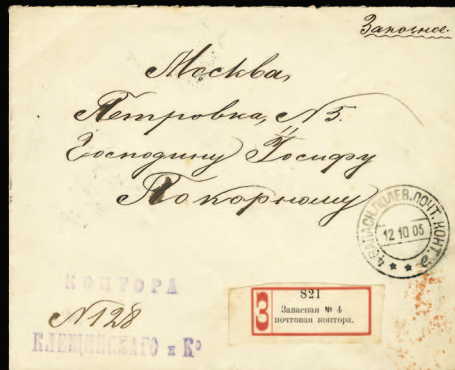 Заказное.
Москва,
Петровка, N 5.
Господину Іосифу
Покорному
4 ЗАПАСН. ПОЛЕВ. ПОЧТ. КОНТ. а
12 10 05
КОНТОРА
N 128
КЛЕЩИНСКАГО и Ко
З
821
Запасная № 4
почтовая контора.